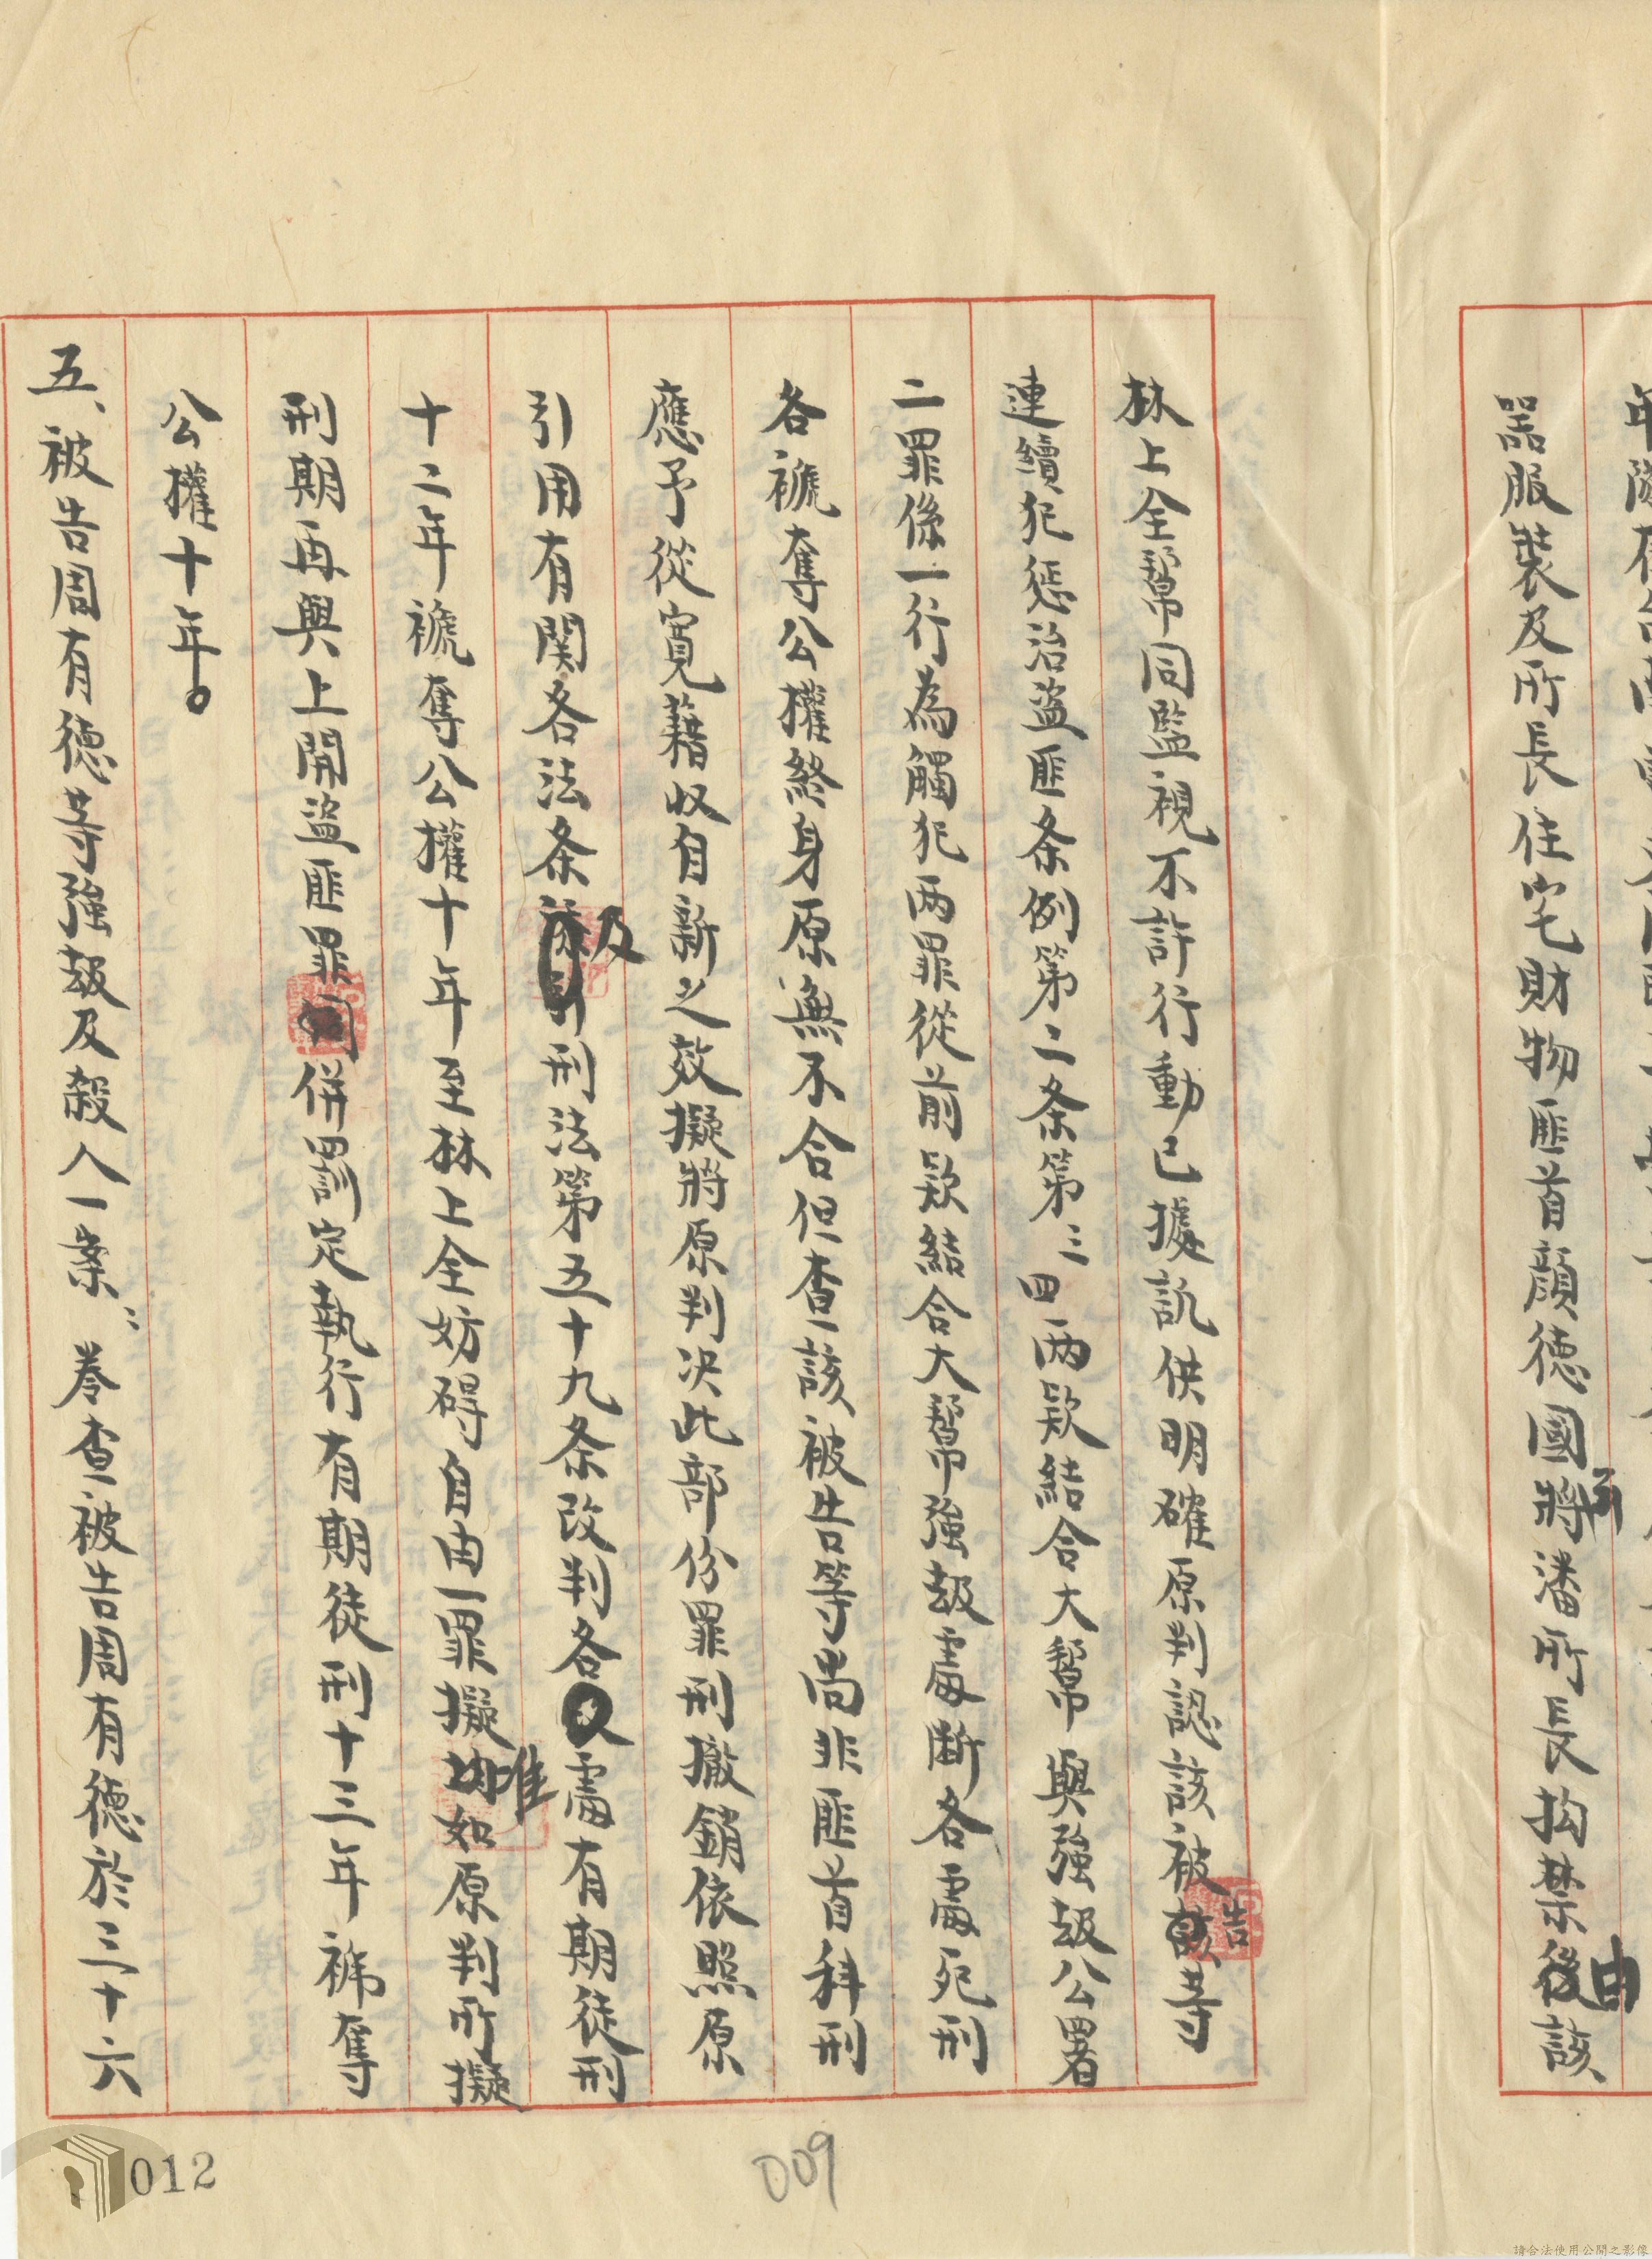 器服裝及所長住宅財物匪首顏德國將潘所長拘禁後由該
林上全幫同監視不許行動已據訊供明確原判認該被告等
連續犯懲治盜匪条例第二条第三四两款結合大幫與強刼公署
二罪係一行為觸犯两罪從前款結合大幫強刼處斷各處死刑
各褫奪公權終身原無不合但查該被告等尚非匪首科刑
應予從寬藉收自新之效擬將原判決此部份罪刑撤銷依照原
引用有関各法条及刑法第五十九条改判各處有期徒刑
十二年褫奪公權十年至林上全妨碍自由一罪擬准如原判所擬
刑期再與上開盜匪罪併罰定執行有期徒刑十三年褫奪
公權十年。
五、被告周有德等強刼及殺人一案：卷查被告周有德於三十六
012
009
請合法使用公開之影像